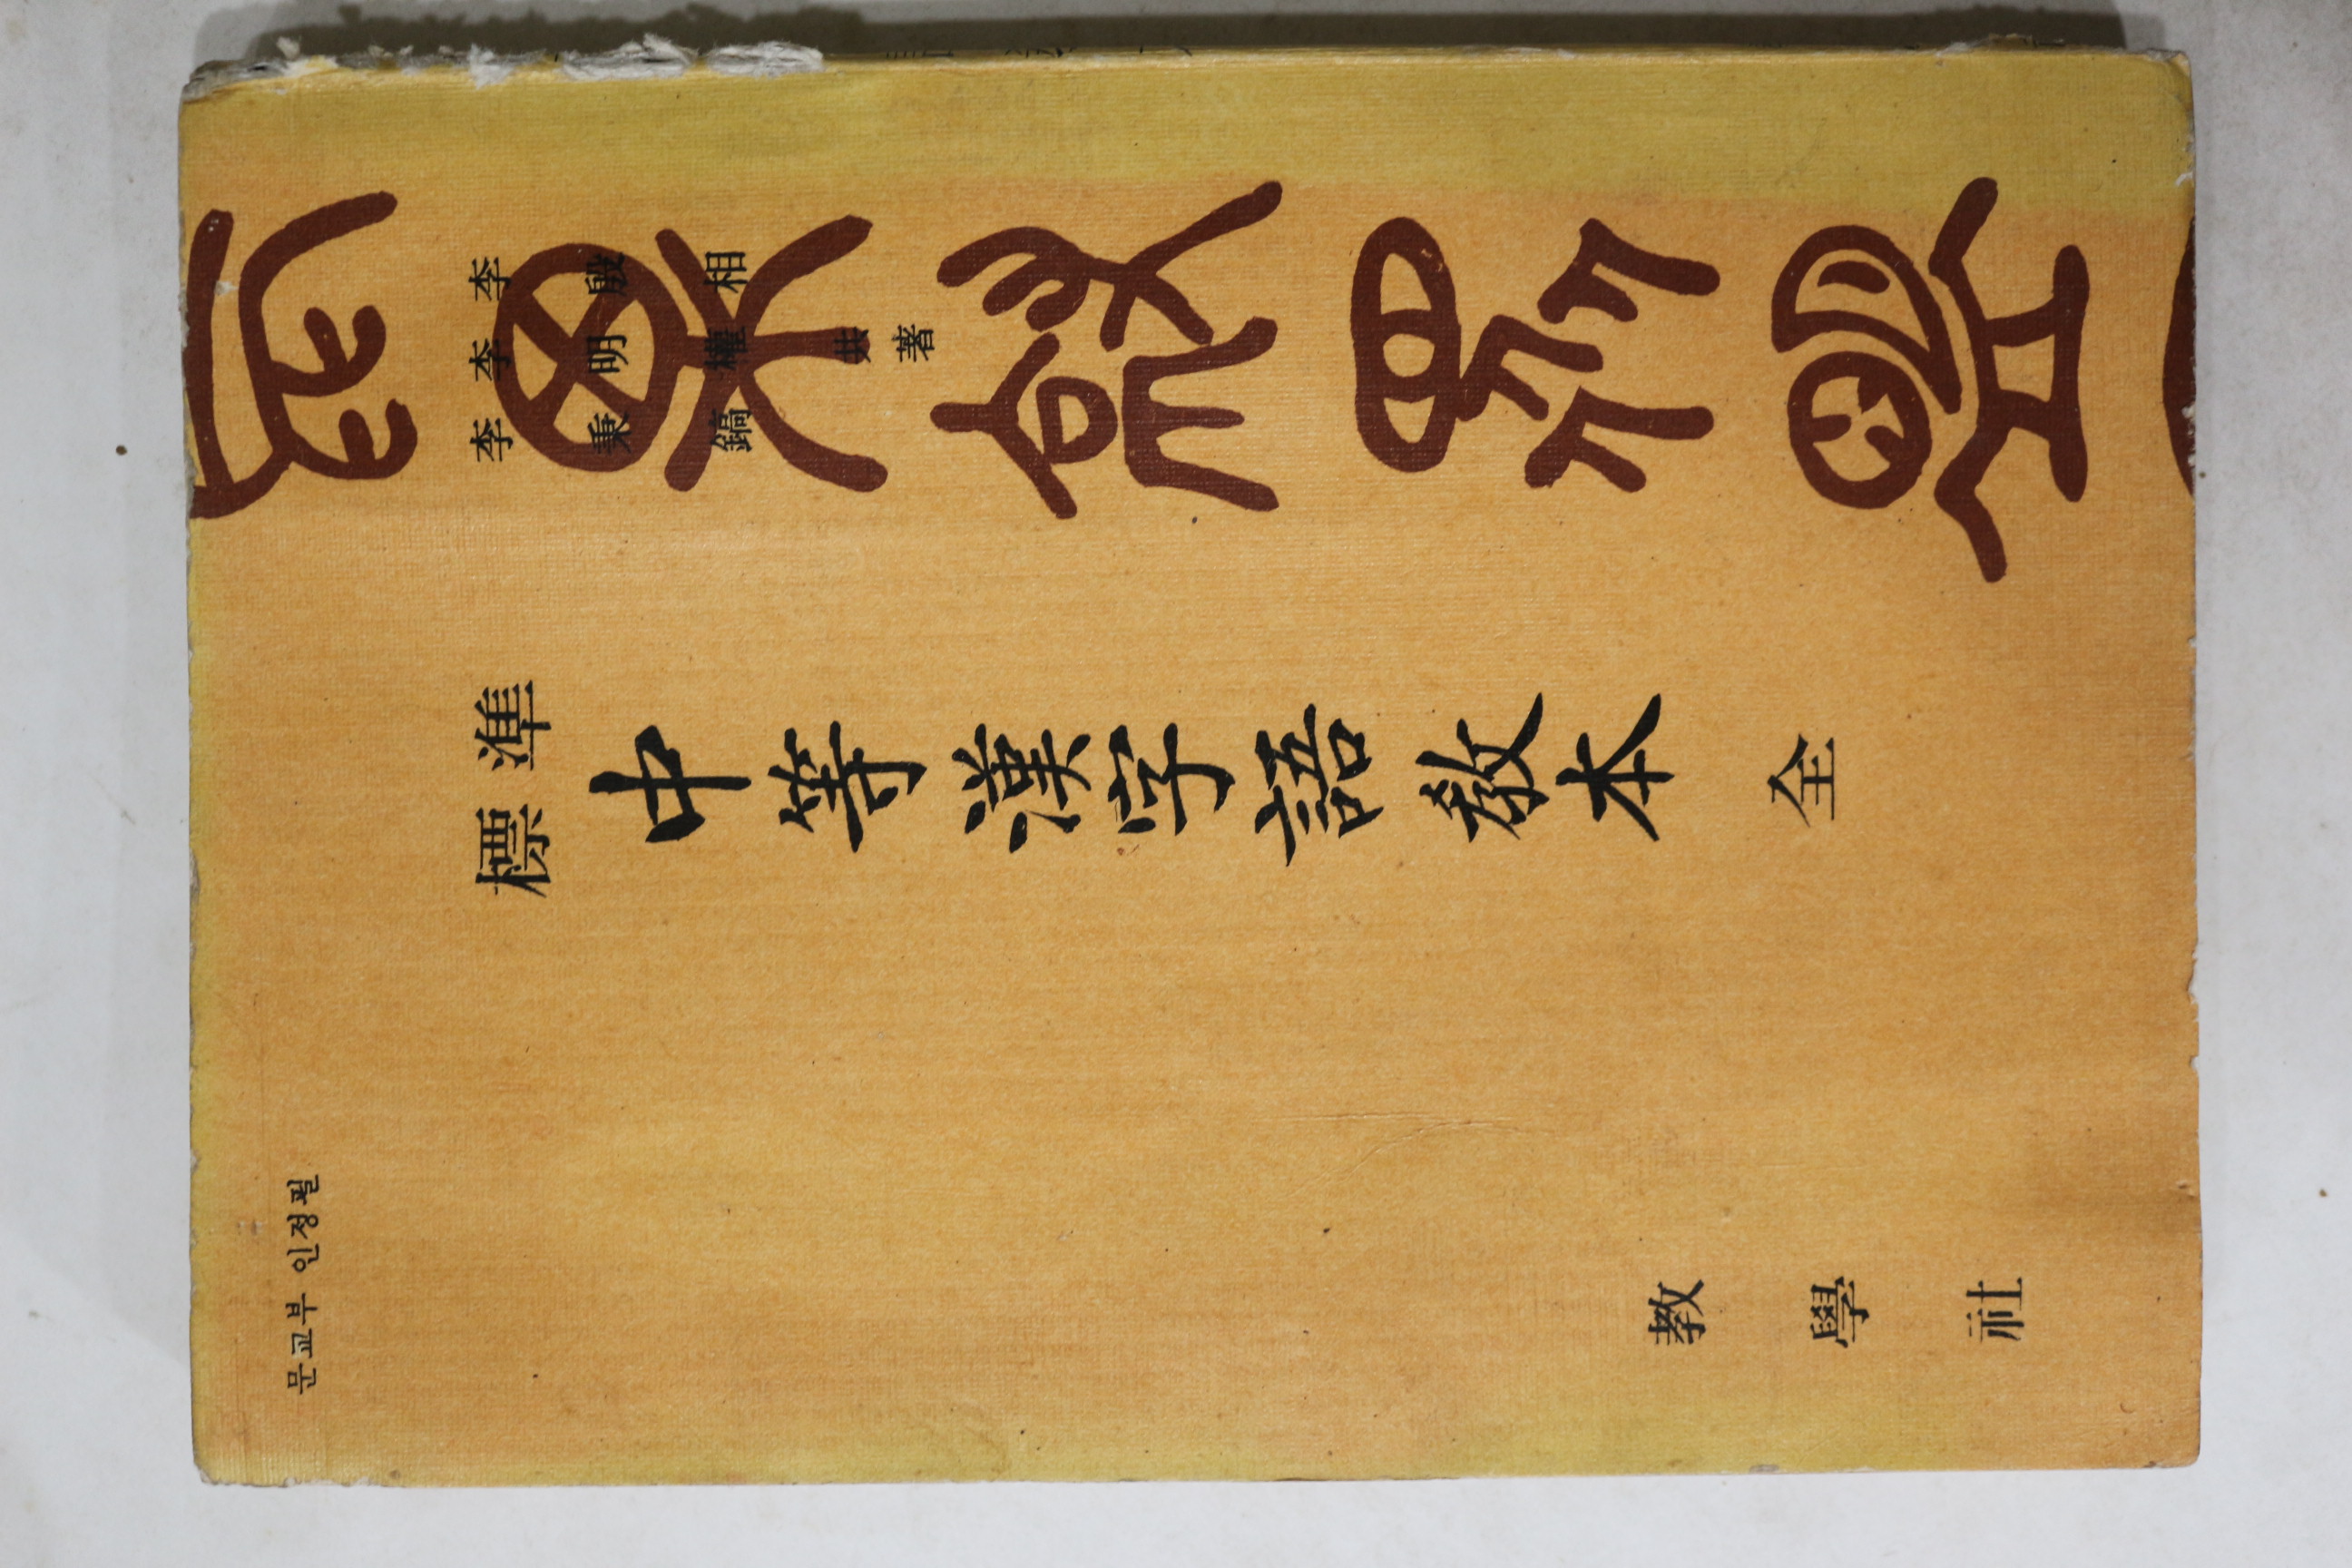 문교부 인정필
李殷相
李明權
李秉鎬
共著
標準
中等漢字語教本 全
教學社